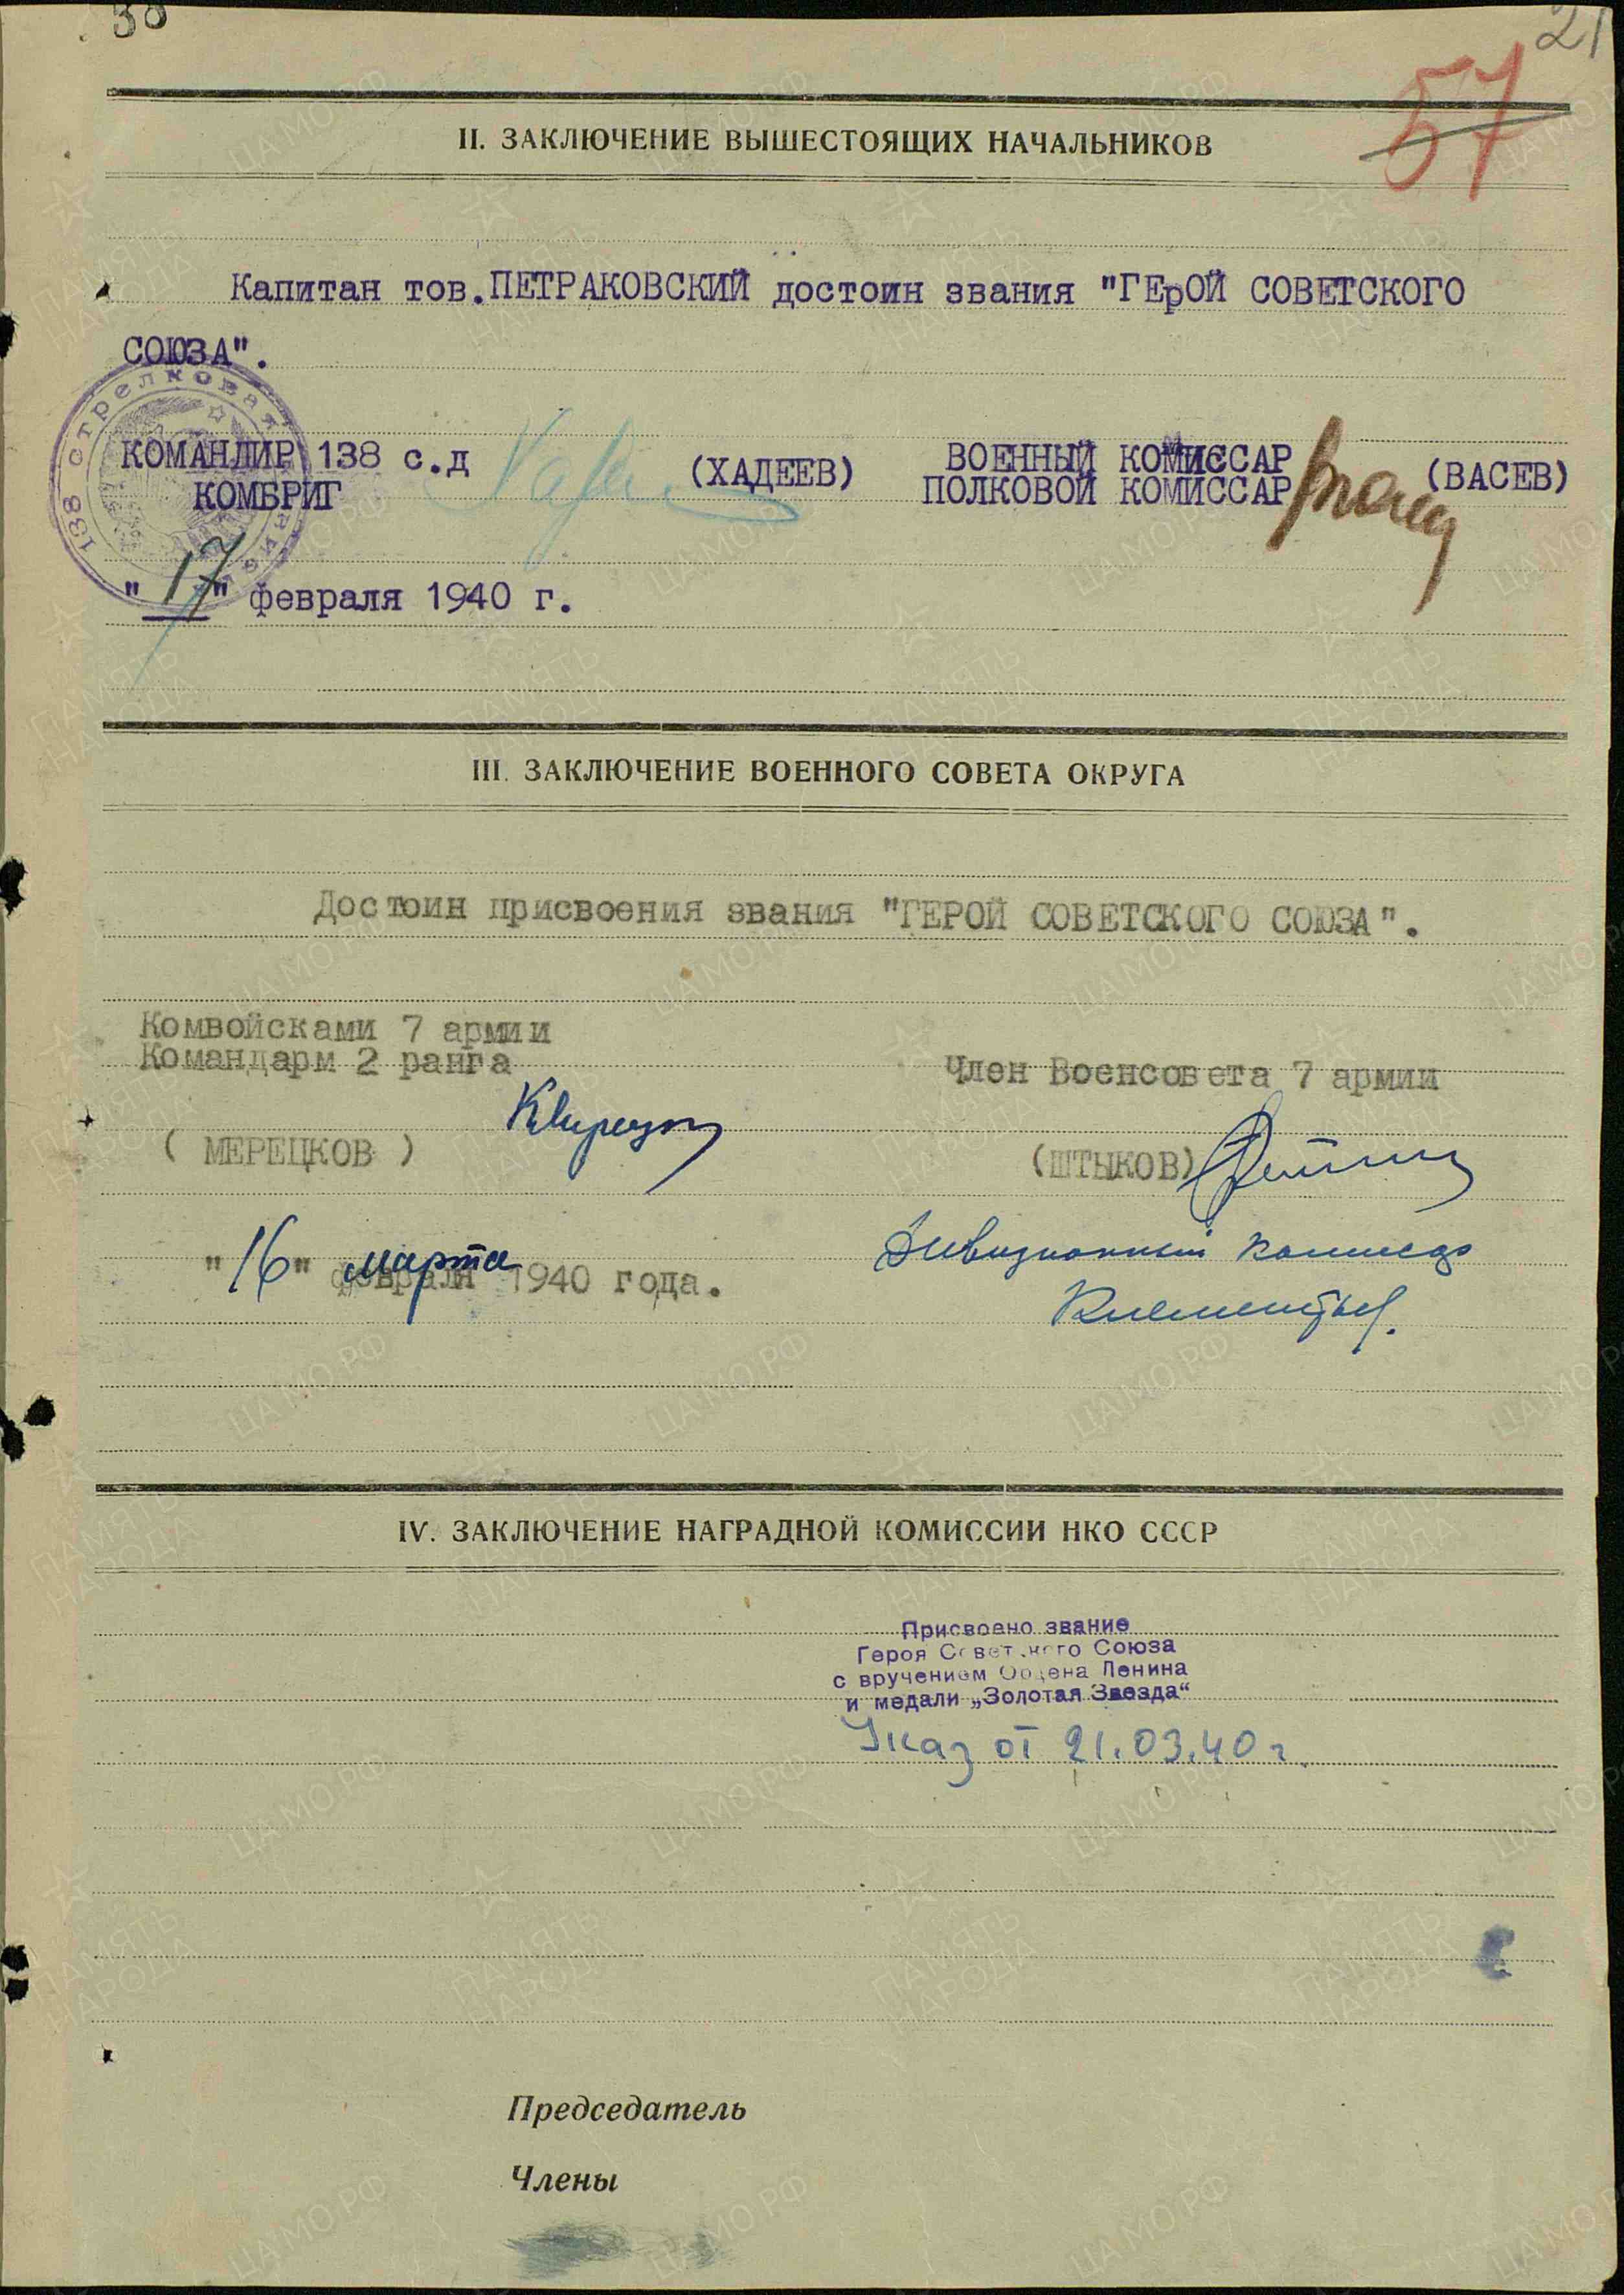 38
21
57
II. ЗАКЛЮЧЕНИЕ ВЫШЕСТОЯЩИХ НАЧАЛЬНИКОВ
Капитан тов.ПЕТРАКОВСКИЙ достоин звания "ГЕрОЙ СОВЕТСКОГО
СОЮЗА".
138 стрелковая
КОМАНДИР 138 с.д (ХАДЕЕВ) ВОЕННЫЙ КОМИССАР (ВАСЕВ)
КОМБРИГ ПОЛКОВОЙ КОМИССАР
"17" февраля 1940 г.
III. ЗАКЛЮЧЕНИЕ ВОЕННОГО СОВЕТА ОКРУГА
Достоин присвоения звания "ГЕРОЙ СОВЕТСКОГО СОЮЗА".
Комвойсками 7 армии
Командарм 2 ранга
Член Военсовета 7 армии
( МЕРЕЦКОВ )
(ШТЫКОВ)
Дивизионный комиссар
"16" марта февраля 1940 года.
Клементьев.
IV. ЗАКЛЮЧЕНИЕ НАГРАДНОЙ КОМИССИИ НКО СССР
Присвоено звание
Героя Советского Союза
с вручением Ордена Ленина
и медали „Золотая Звезда“
Указ от 21.03.40 г.
Председатель
Члены
ПАМЯТЬ НАРОДА
ЦАМО РФ